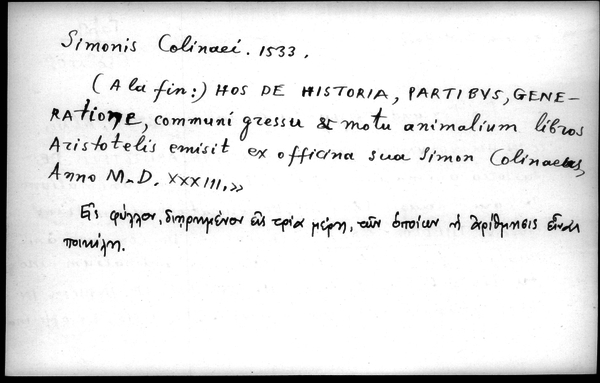 Simonis Colinaei. 1533.
(A la fin:) HOS DE HISTORIA, PARTIBVS, GENE-
RATIONE, communi gressu & motu animalium libros
Aristotelis emisit ex officina sua Simon Colinaeus,
Anno M.D. XXXIII.»
Εἰς φύλλον, διῃρημένον εἰς τρία μέρη, τῶν ὁποίων ἡ ἀρίθμησις εἶναι
ποικίλη.